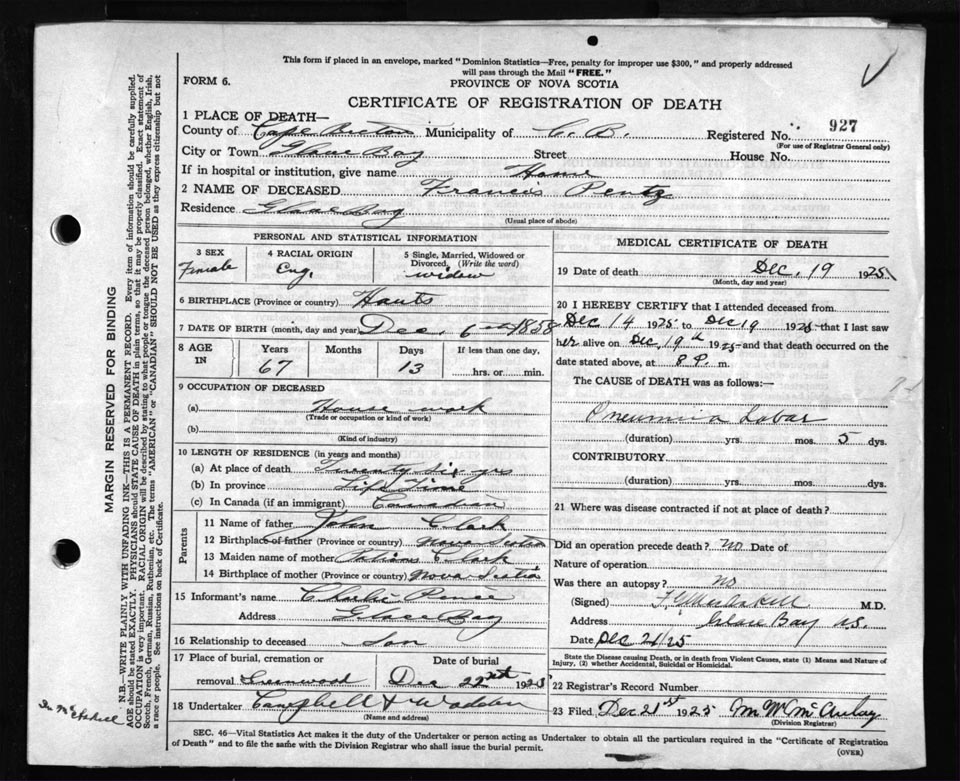 This form if placed in an envelope, marked "Dominion Statistics—Free, penalty for improper use $300," and properly addressed
will pass through the Mail "FREE."
FORM 6.
PROVINCE OF NOVA SCOTIA
CERTIFICATE OF REGISTRATION OF DEATH
1 PLACE OF DEATH—
County of Cape Breton Municipality of C. B. Registered No. 927
(For use of Registrar General only)
City or Town Glace Bay Street House No.
If in hospital or institution, give name Home
2 NAME OF DECEASED Francis Pentz
Residence Glace Bay
(Usual place of abode)
PERSONAL AND STATISTICAL INFORMATION
3 SEX Female
4 RACIAL ORIGIN Eng.
5 Single, Married, Widowed or Divorced, (Write the word) widow
6 BIRTHPLACE (Province or country) Hants
7 DATE OF BIRTH (month, day and year) Dec. 6th 1858
8 AGE IN Years Months Days If less than one day,
67 13 hrs. or min.
9 OCCUPATION OF DECEASED
(a) House work
(Trade or occupation or kind of work)
(b)
(Kind of industry)
10 LENGTH OF RESIDENCE (in years and months)
(a) At place of death Twenty six yrs
(b) In province Life Time
(c) In Canada (if an immigrant) Canadian
Parents
11 Name of father John Clark
12 Birthplace of father (Province or country) Nova Scotia
13 Maiden name of mother Clark
14 Birthplace of mother (Province or country) Nova Scotia
15 Informant's name Charlie
Address Glace Bay
16 Relationship to deceased Son
17 Place of burial, cremation or removal Greenwood
Date of burial Dec 22nd 1925
18 Undertaker Campbell & Wadden
(Name and address)
MEDICAL CERTIFICATE OF DEATH
19 Date of death Dec. 19 1925
(Month, day and year)
20 I HEREBY CERTIFY that I attended deceased from
Dec 14 1925 to Dec 19 1925 that I last saw
her alive on Dec. 19th 1925 and that death occurred on the
date stated above, at 8 P. m.
The CAUSE OF DEATH was as follows:
Pneumonia Lobar
(duration) yrs. mos. 5 dys.
CONTRIBUTORY
(duration) yrs. mos. dys.
21 Where was disease contracted if not at place of death?
Did an operation precede death? No Date of
Nature of operation
Was there an autopsy? no
(Signed) M.D.
Address Glace Bay N.S.
Date Dec 21/25
State the Disease causing Death, or in death from Violent Causes, state (1) Means and Nature of
Injury, (2) whether Accidental, Suicidal or Homicidal.
22 Registrar's Record Number
23 Filed Dec 21st 1925 M. W. McAulay
(Division Registrar)
SEC. 46—Vital Statistics Act makes it the duty of the Undertaker or person acting as Undertaker to obtain all the particulars required in the "Certificate of Registration
of Death" and to file the same with the Division Registrar who shall issue the burial permit.
(OVER)
MARGIN RESERVED FOR BINDING
N.B.—WRITE PLAINLY WITH UNFADING INK—THIS IS A PERMANENT RECORD. Every item of information should be carefully supplied.
AGE should be stated EXACTLY. PHYSICIANS should STATE CAUSE OF DEATH in plain terms, so that it may be properly classified. Exact statement of
OCCUPATION is very important. RACIAL ORIGIN will be described by stating to what people or tongue the deceased person belonged, whether English, Irish,
Scotch, French, German, Russian, Ruthenian, etc. The terms "AMERICAN" or "CANADIAN" SHOULD NOT BE USED as they express citizenship but not
a race or people. See instructions on back of Certificate.